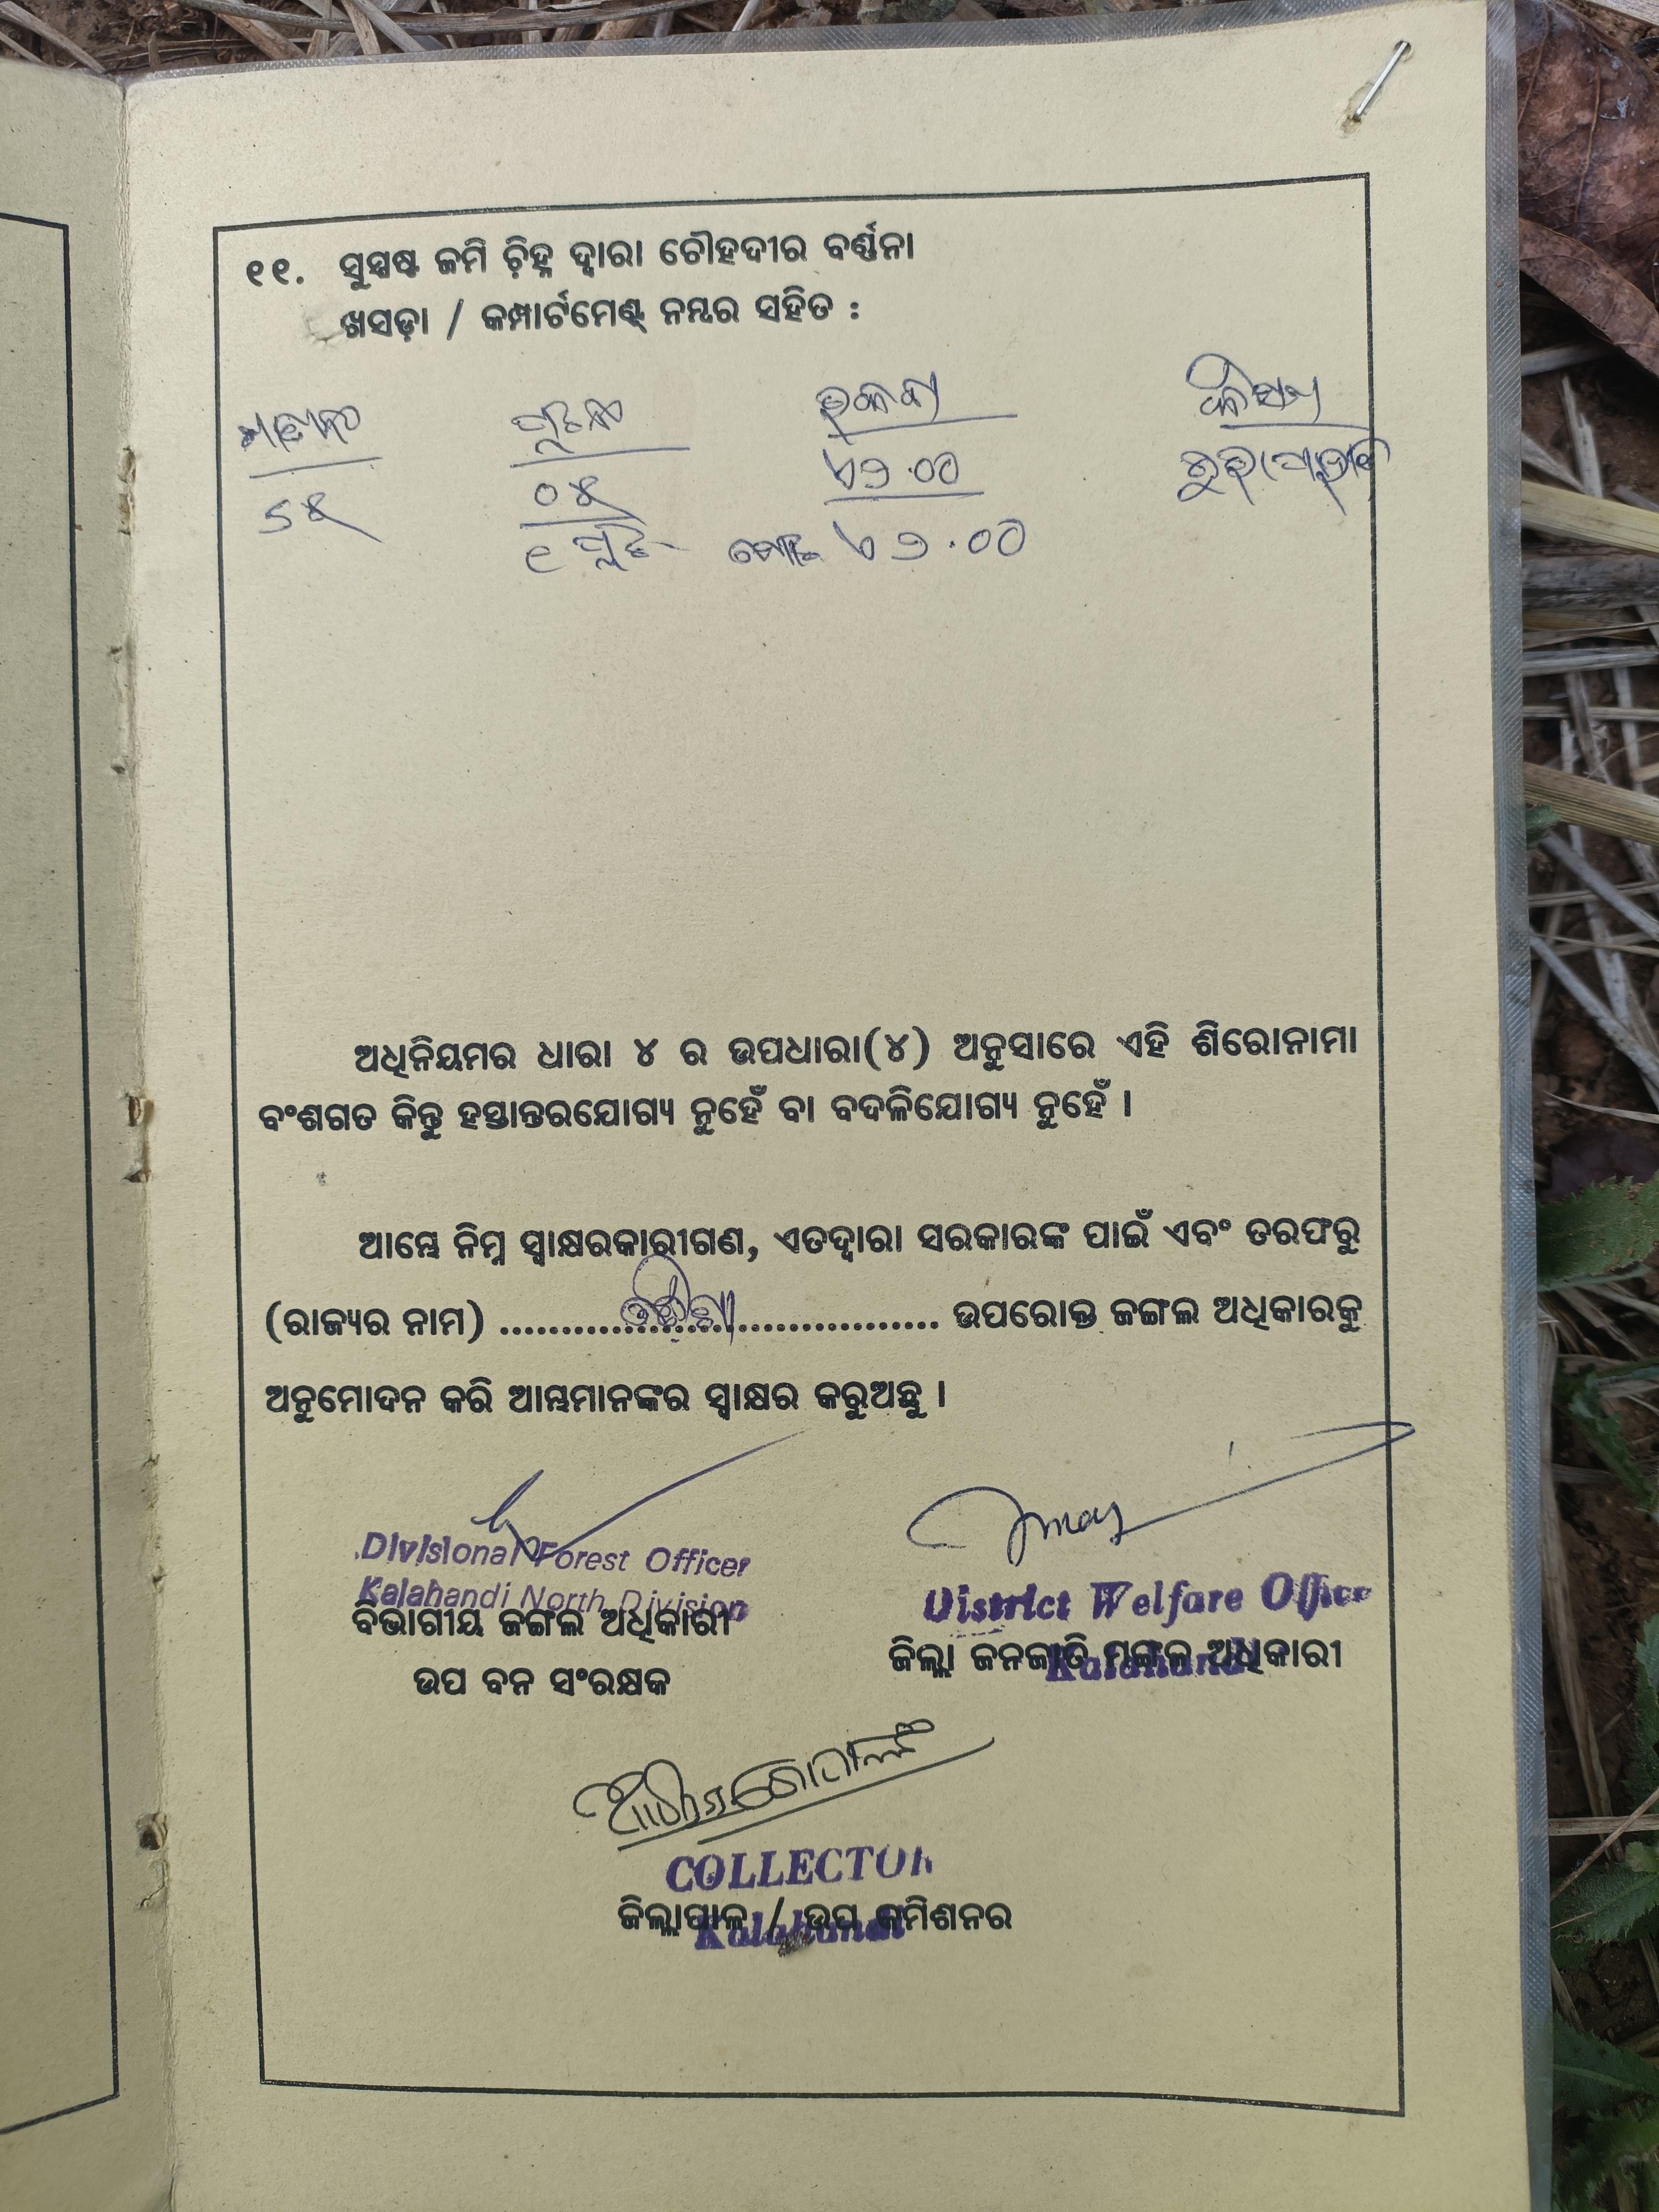 ୧୧. ସୁସ୍ପଷ୍ଟ ଜମି ଚ଼ିହ୍ନ ଦ୍ୱାରା ଚୌହଦୀର ବର୍ଣ୍ଣନା
ଖସଡ଼ା / କମ୍ପାର୍ଟମେଣ୍ଟ୍ ନମ୍ବର ସହିତ :
ରକବା କିସମ
୦୫ ଏ୨.୦୦
୧ ପ୍ଲଟ ମୋଟ ଏ ୨.୦୦
ଅଧିନିୟମର ଧାରା ୪ ର ଉପଧାରା(୪) ଅନୁସାରେ ଏହି ଶିରୋନାମା
ବଂଶଗତ କିନ୍ତୁ ହସ୍ତାନ୍ତରଯୋଗ୍ୟ ନୁହେଁ ବା ବଦଳିଯୋଗ୍ୟ ନୁହେଁ ।
ଆମ୍ଭେ ନିମ୍ନ ସ୍ୱାକ୍ଷରକାରୀଗଣ, ଏତଦ୍ୱାରା ସରକାରଙ୍କ ପାଇଁ ଏବଂ ତରଫରୁ
(ରାଜ୍ୟର ନାମ) ....ଓଡ଼ିଶା.... ଉପରୋକ୍ତ ଜଙ୍ଗଲ ଅଧିକାରକୁ
ଅନୁମୋଦନ କରି ଆମ୍ଭମାନଙ୍କର ସ୍ୱାକ୍ଷର କରୁଅଛୁ ।
Divisional Forest Officer
Kalahandi North Division
ବିଭାଗୀୟ ଜଙ୍ଗଲ ଅଧିକାରୀ
ଉପ ବନ ସଂରକ୍ଷକ
District Welfare Office
Kalahandi
ଜିଲ୍ଲା ଜନଜାତି ମଙ୍ଗଳ ଅଧିକାରୀ
COLLECTOR
Kalahandi
ଜିଲ୍ଲାପାଳ / ଉପ କମିଶନର